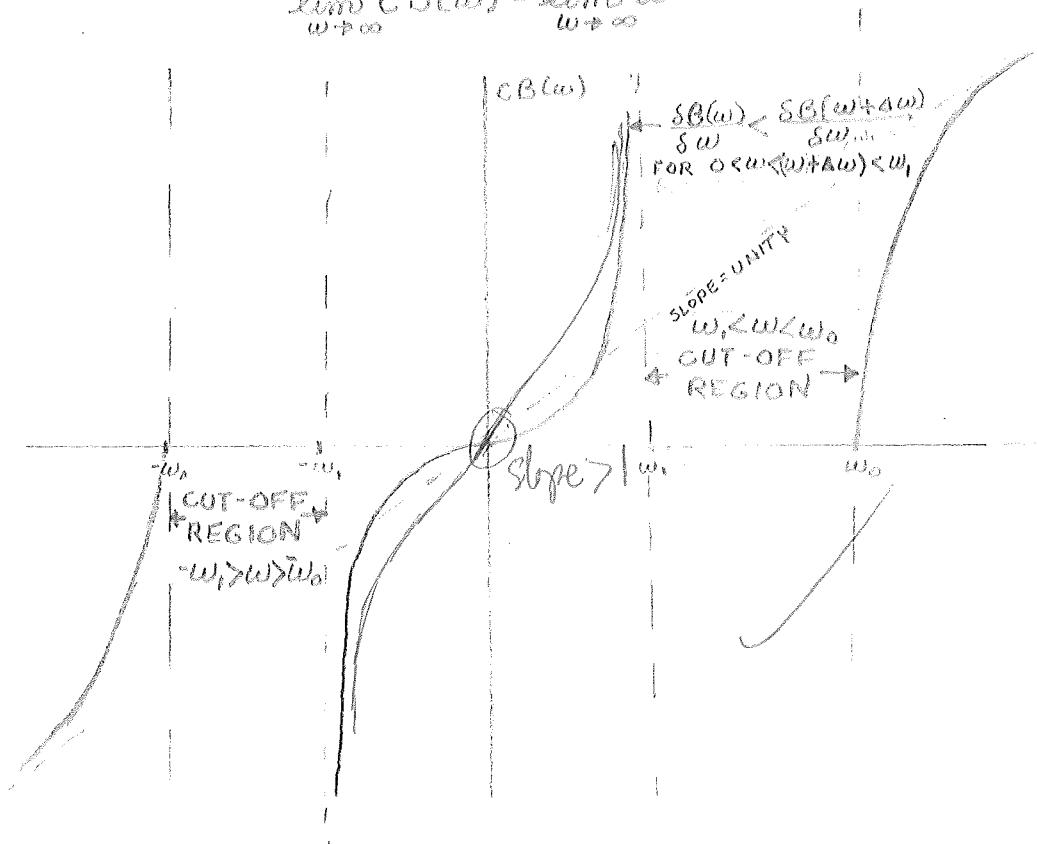 lim CB(ω) = lim ω
ω→∞ ω→∞
CB(ω)
δB(ω)/δω < δB(ω+Δω)/δω
FOR 0<ω<(ω+Δω)<ω₁
SLOPE=UNITY
ω₁<ω<ω₀
CUT-OFF
REGION
-ω₀ -ω₁ slope>1 ω₁ ω₀
CUT-OFF
REGION
-ω₁>ω>-ω₀